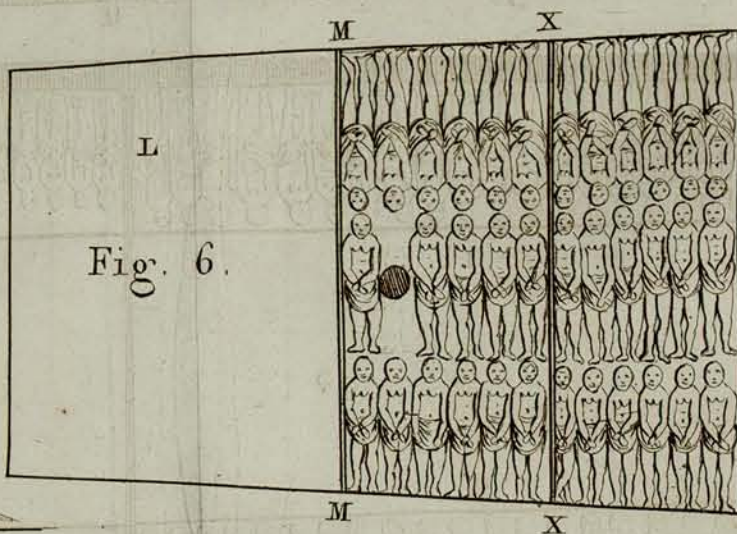 M X
L
Fig. 6.
M X